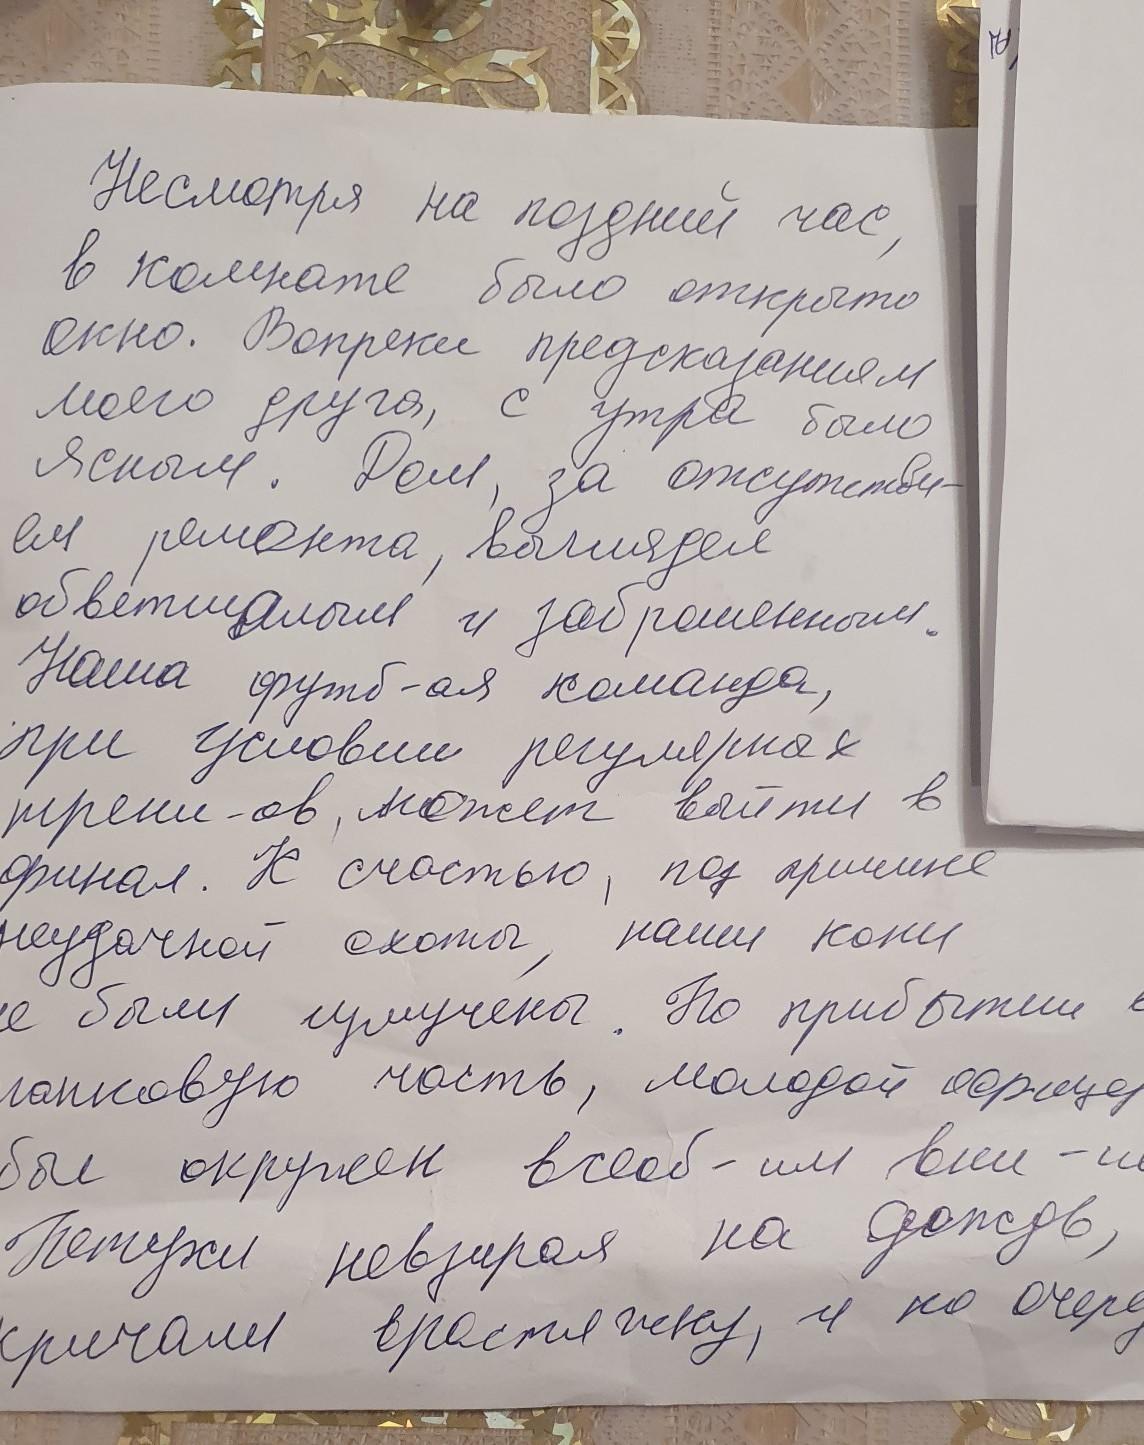 Несмотря на поздний час,
в комнате было открыто
окно. Вопреки предсказаниям
моего друга, с утра было
ясным. Дом, за отсутстви-
ем ремонта, выглядел
обветшалым и заброшенным.
Наша футб-ая команда,
при условии регулярных
трени-ов, может выйти в
финал. К счастью, по причине
неудачной охоты, наши кони
не были измучены. По прибытии в
танковую часть, молодой офицер
был окружен всеоб-им вни-
Петухи невзирая на дождь,
кричали врастяжку, и по очере